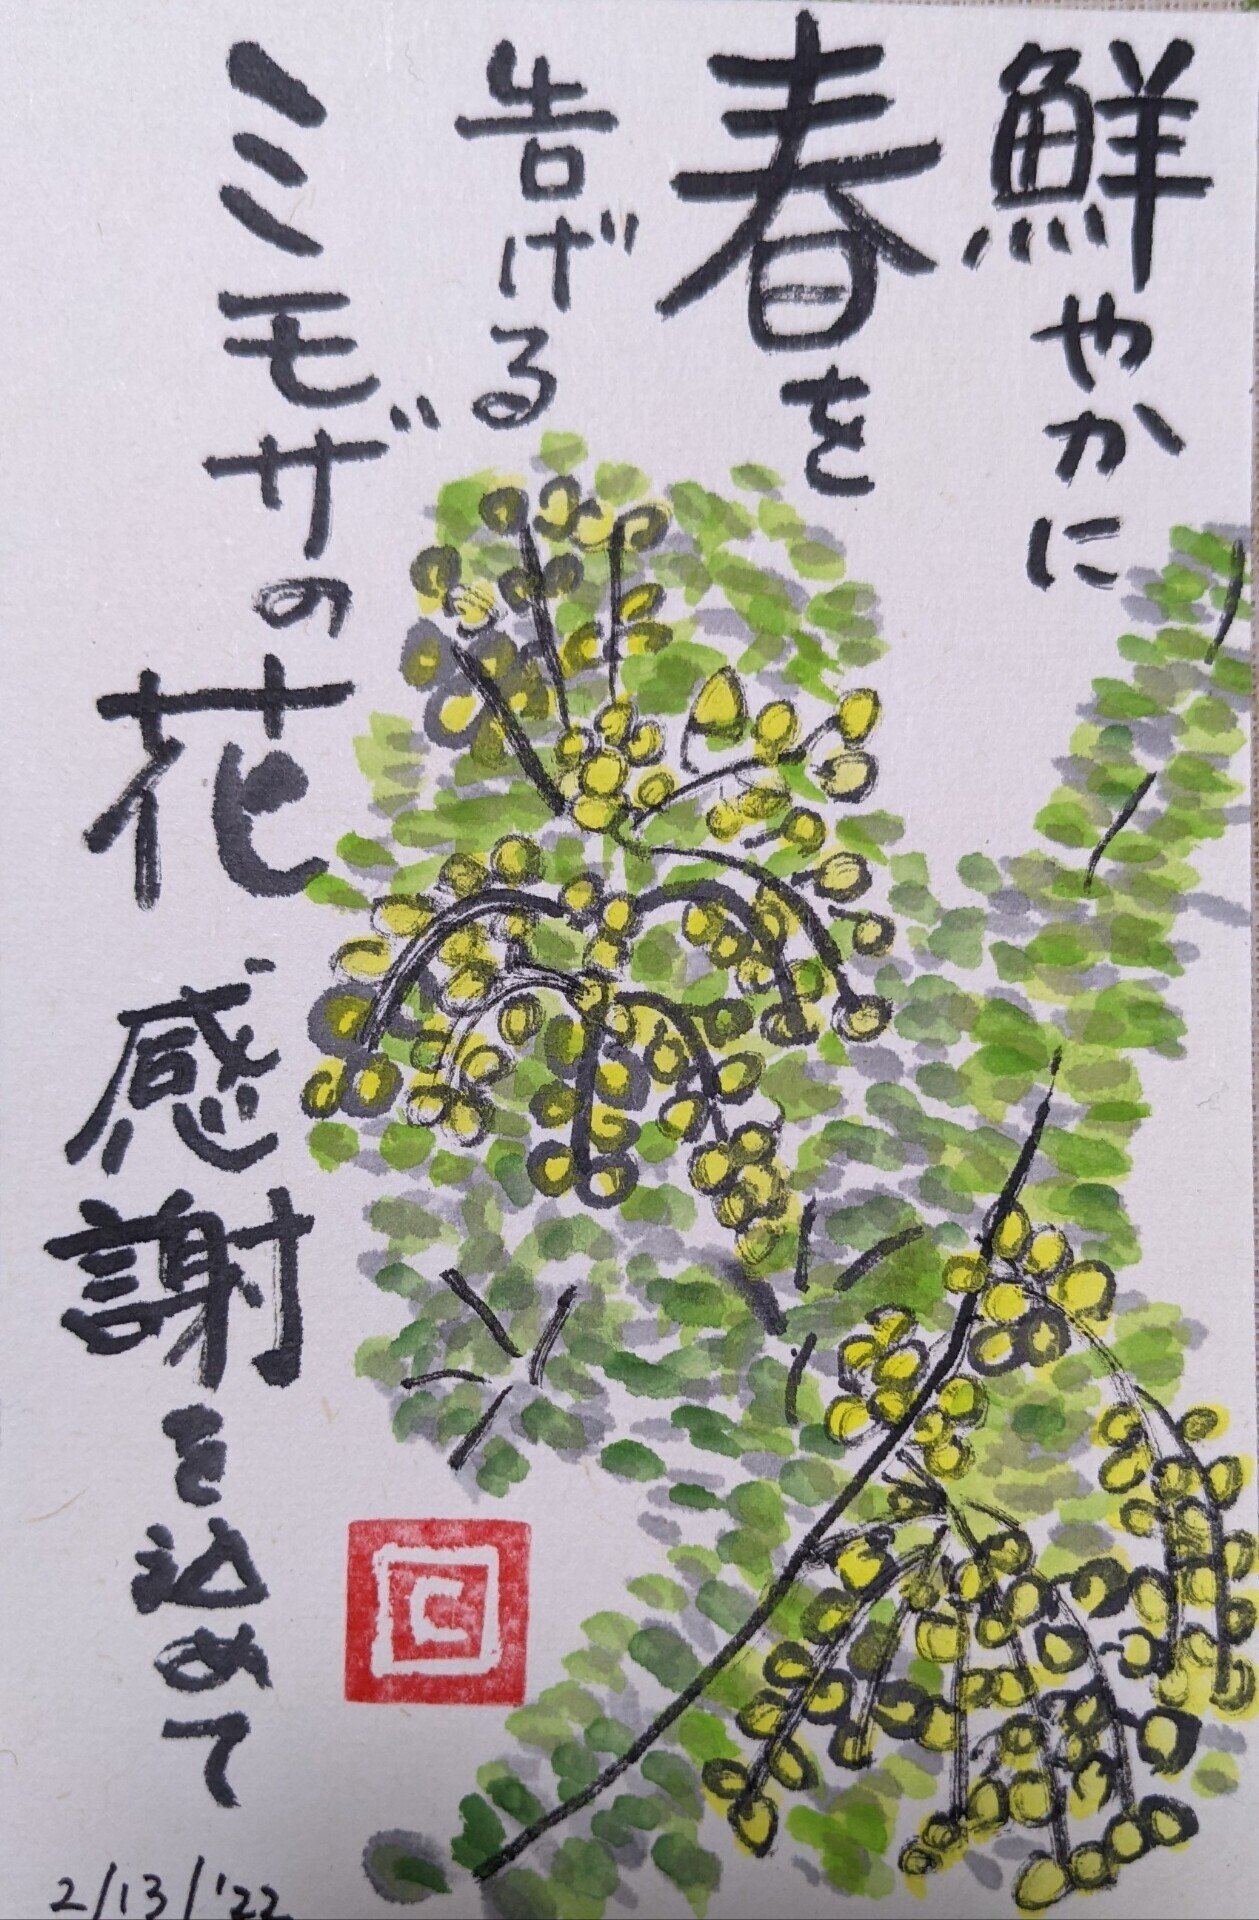 鮮やかに
春を
告げる
ミモザの花
感謝を込めて
C
2/13/'22